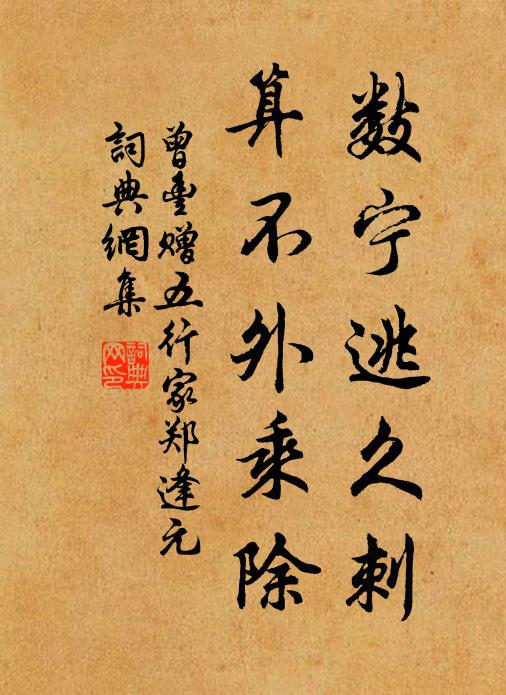 数宁逃久刺
算不外乘除
曾丰赠五行家郑逢元
詞典網集
詞典網印